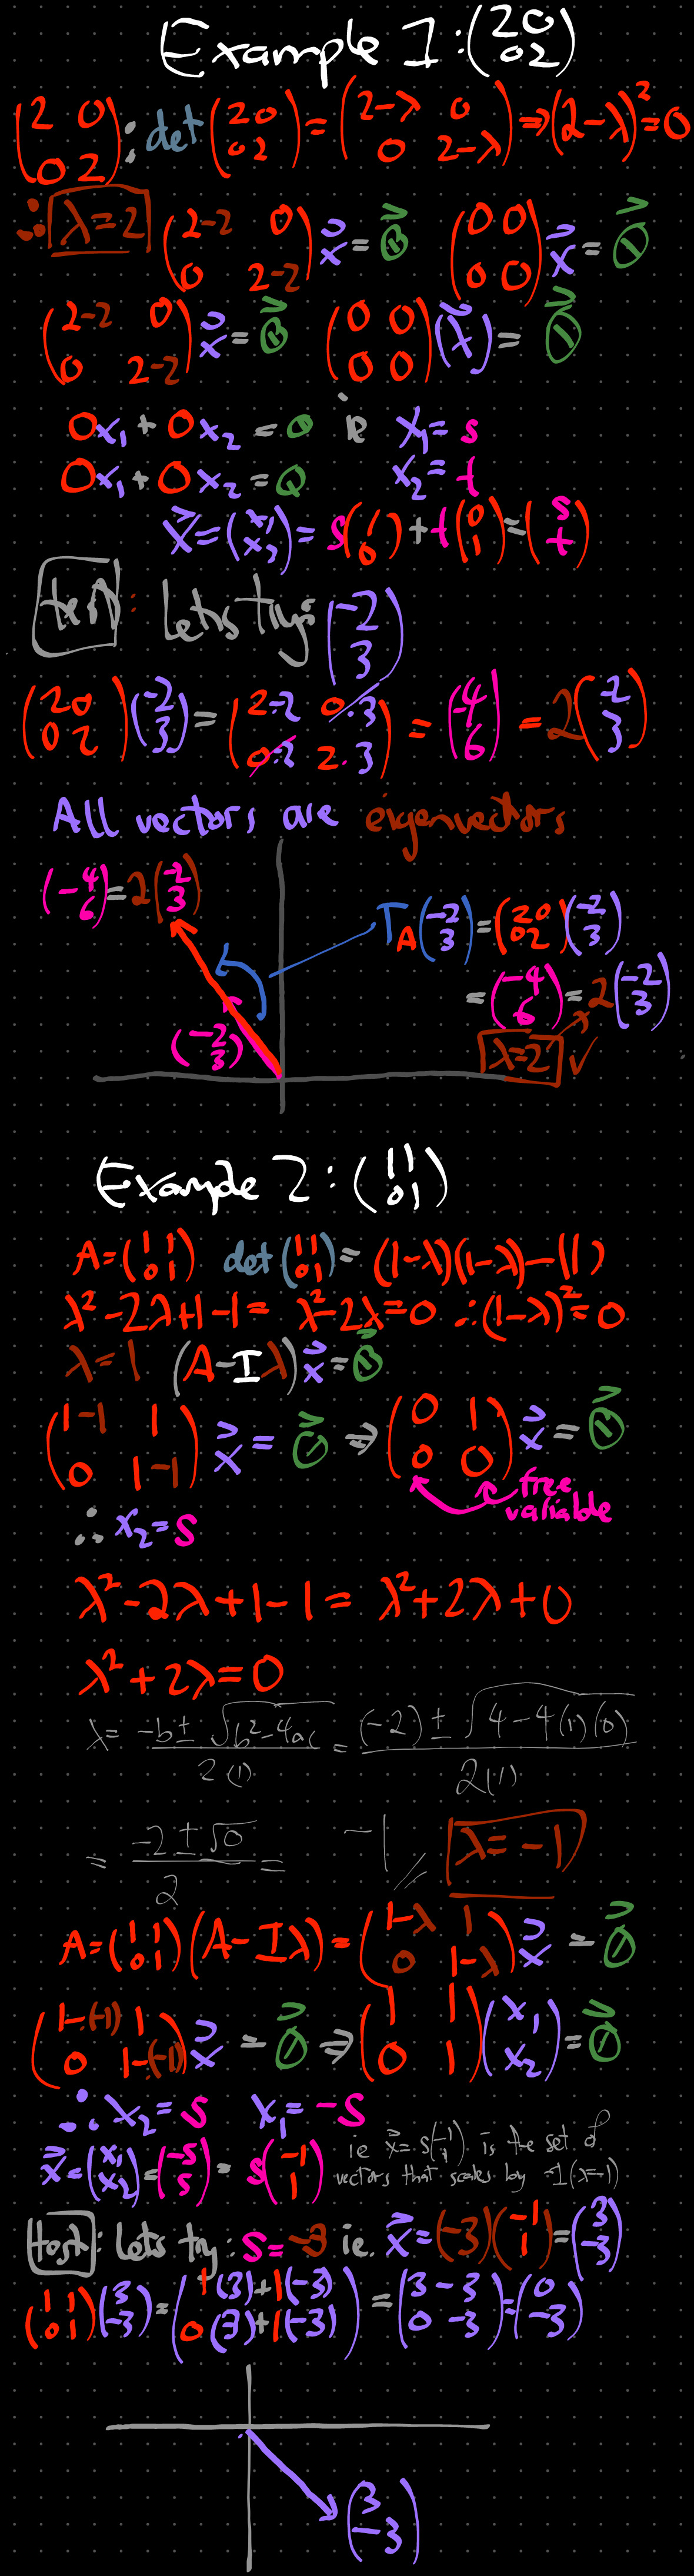 Example 1: (2 0 / 0 2)
(2 0 / 0 2): det (2 0 / 0 2) = (2-λ 0 / 0 2-λ) ⇒ (2-λ)² = 0
∴ λ=2 (2-2 0 / 0 2-2) x⃗ = 0⃗ (0 0 / 0 0) x⃗ = 0⃗
(2-2 0 / 0 2-2) x⃗ = 0⃗ (0 0 / 0 0)(x⃗) = 0⃗
0x₁ + 0x₂ = 0 ie x₁ = s
0x₁ + 0x₂ = 0 x₂ = t
x⃗ = (x₁ / x₂) = s(1 / 0) + t(0 / 1) = (s / t)
test: Lets try: (-2 / 3)
(2 0 / 0 2)(-2 / 3) = (2·-2 0·3 / 0·-2 2·3) = (-4 / 6) = 2(-2 / 3)
All vectors are eigenvectors
(-4 / 6) = 2(-2 / 3)
T_A(-2 / 3) = (2 0 / 0 2)(-2 / 3)
= (-4 / 6) = 2(-2 / 3)
(-2 / 3)
λ=2 ✓
Example 2: (1 1 / 0 1)
A = (1 1 / 0 1) det (1 1 / 0 1) = (1-λ)(1-λ)-(1)
λ²-2λ+1-1 = λ²-2λ=0 ∴ (1-λ)² = 0
λ=1 (A-Iλ) x⃗ = 0⃗
(1-1 1 / 0 1-1) x⃗ = 0⃗ ⇒ (0 1 / 0 0) x⃗ = 0⃗
free
variable
∴ x₂ = s
λ²-2λ+1-1 = λ²+2λ+0
λ²+2λ=0
λ = (-b ± √(b²-4ac)) / 2(1) = ((-2) ± √(4-4(1)(0))) / 2(1)
= (-2 ± √0) / 2 = -1 // λ=-1
A = (1 1 / 0 1) (A-Iλ) = (1-λ 1 / 0 1-λ) x⃗ = 0⃗
(1-(-1) 1 / 0 1-(-1)) x⃗ = 0⃗ ⇒ (1 1 / 0 1)(x₁ / x₂) = 0⃗
∴ x₂ = s x₁ = -s
x⃗ = (x₁ / x₂) = (-s / s) = s(-1 / 1) ie x⃗ = s(-1 / 1) is the set of
vectors that scales by -1 (λ=-1)
test: Lets try: s=-3 ie. x⃗ = (-3)(-1 / 1) = (3 / -3)
(1 1 / 0 1)(3 / -3) = (1(3)+1(-3) / 0(3)+1(-3)) = (3-3 / 0-3) = (0 / -3)
(3 / -3)